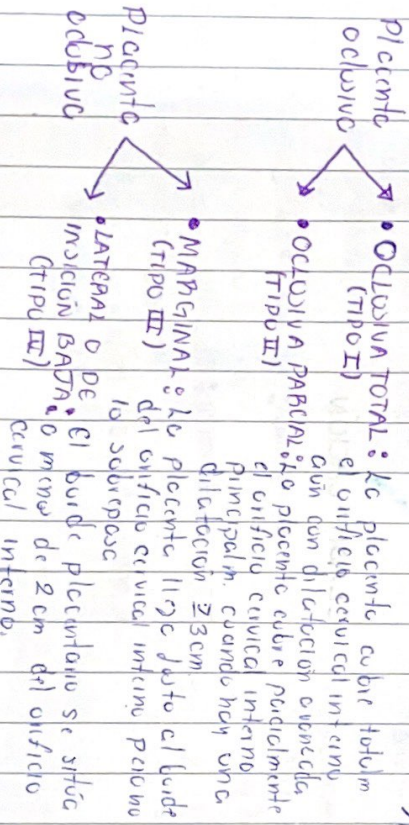 Placenta
oclusiva
• OCLUSIVA TOTAL: La placenta cubre totalm
(TIPO I) el orificio cervical interno
aún con dilatación avanzada
• OCLUSIVA PARCIAL: La placenta cubre parcialmente
(TIPO II) el orificio cervical interno
principalm. cuando hay una
dilatación ≥3cm
Placenta
no
oclusiva
• MARGINAL: La placenta llega justo al borde
(TIPO III) del orificio cervical interno pero no
lo sobrepasa
• LATERAL O DE
INSICIÓN BAJA: El borde placentario se sitúa
(TIPO III) a menos de 2 cm del orificio
cervical interno.